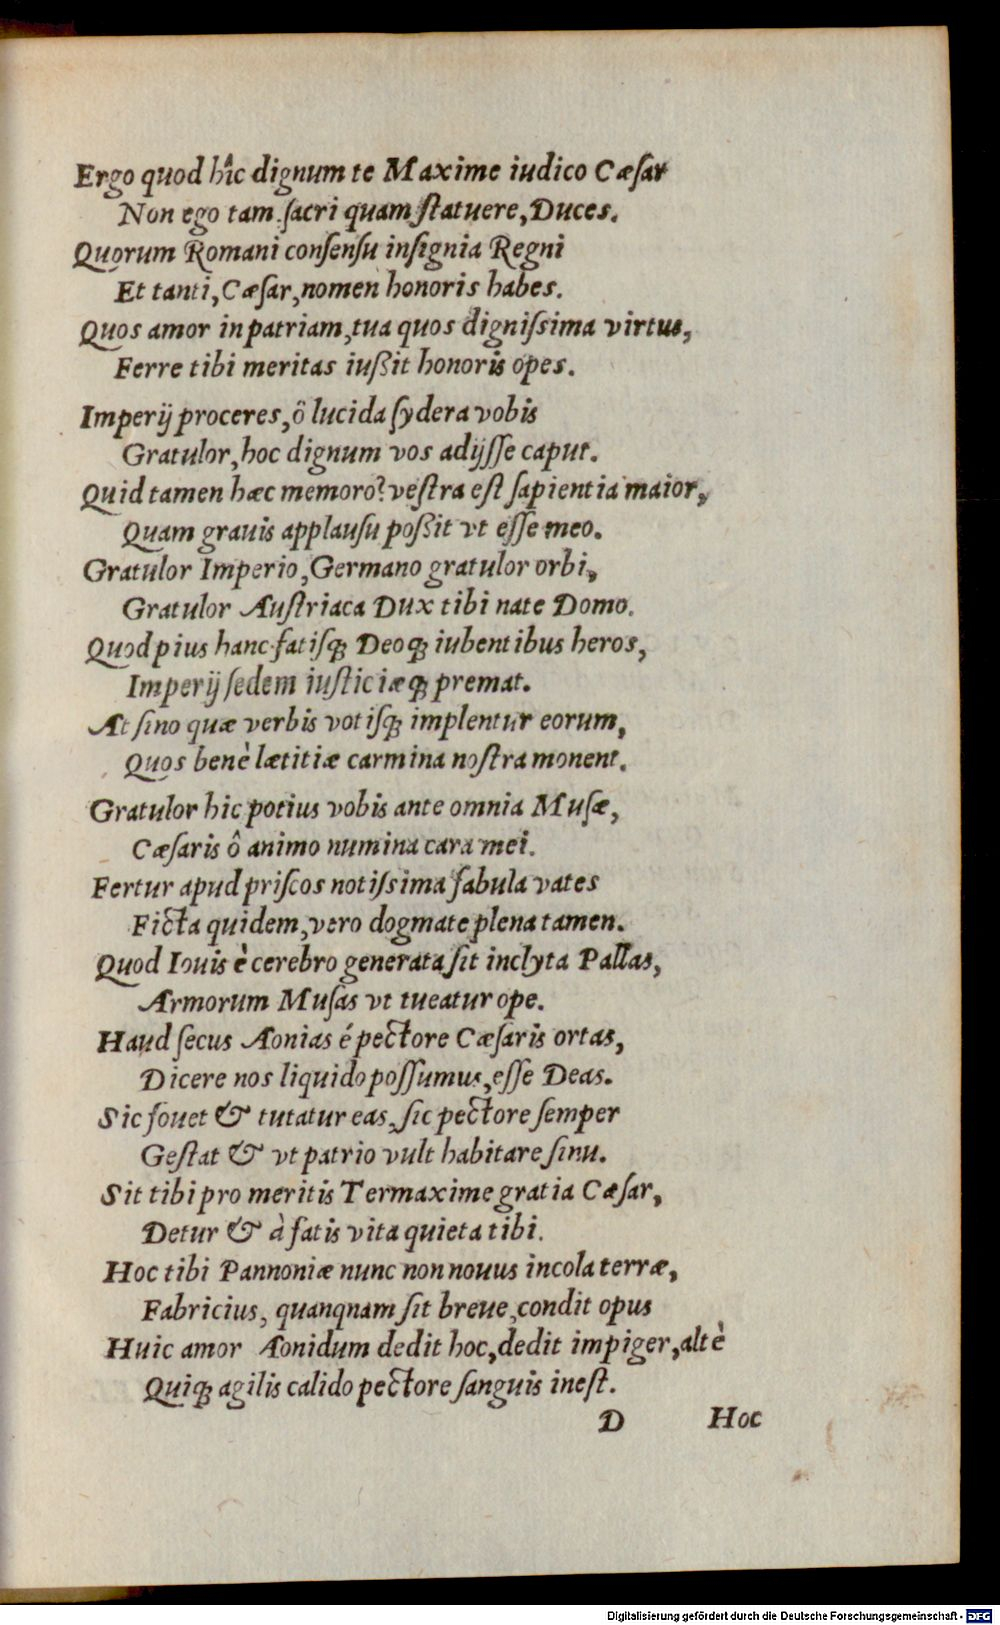 Ergo quod hîc dignum te Maxime iudico Cæſar
Non ego tam ſacri quam ſtatuere, Duces.
Quorum Romani conſenſu inſignia Regni
Et tanti, Cæſar, nomen honoris habes.
Quos amor in patriam, tua quos digniſsima virtus,
Ferre tibi meritas iußit honoris opes.
Imperij proceres, ô lucida ſydera vobis
Gratulor, hoc dignum vos adijſſe caput.
Quid tamen hæc memoro? veſtra eſt ſapientia maior,
Quam grauis applauſu poßit vt eſſe meo.
Gratulor Imperio, Germano gratulor orbi,
Gratulor Auſtriaca Dux tibi nate Domo.
Quod pius hanc fatiſq́; Deoq́; iubentibus heros,
Imperij ſedem iuſticiæq́; premat.
At ſino quæ verbis votiſq́; implentur eorum,
Quos benè lætitiæ carmina noſtra monent.
Gratulor hic potius vobis ante omnia Muſæ,
Cæſaris ô animo numina cara mei.
Fertur apud priſcos notiſsima fabula vates
Ficta quidem, vero dogmate plena tamen.
Quod Iouis è cerebro generata ſit inclyta Pallas,
Armorum Muſas vt tueatur ope.
Haud ſecus Aonias é pectore Cæſaris ortas,
Dicere nos liquido poſſumus, eſſe Deas.
Sic fouet & tutatur eas, ſic pectore ſemper
Geſtat & vt patrio vult habitare ſinu.
Sit tibi pro meritis Termaxime gratia Cæſar,
Detur & à fatis vita quieta tibi.
Hoc tibi Pannoniæ nunc non nouus incola terræ,
Fabricius, quanqnam ſit breue, condit opus
Huic amor Aonidum dedit hoc, dedit impiger, altè
Quiq́; agilis calido pectore ſanguis ineſt.
D Hoc
Digitalisierung gefördert durch die Deutsche Forschungsgemeinschaft - DFG